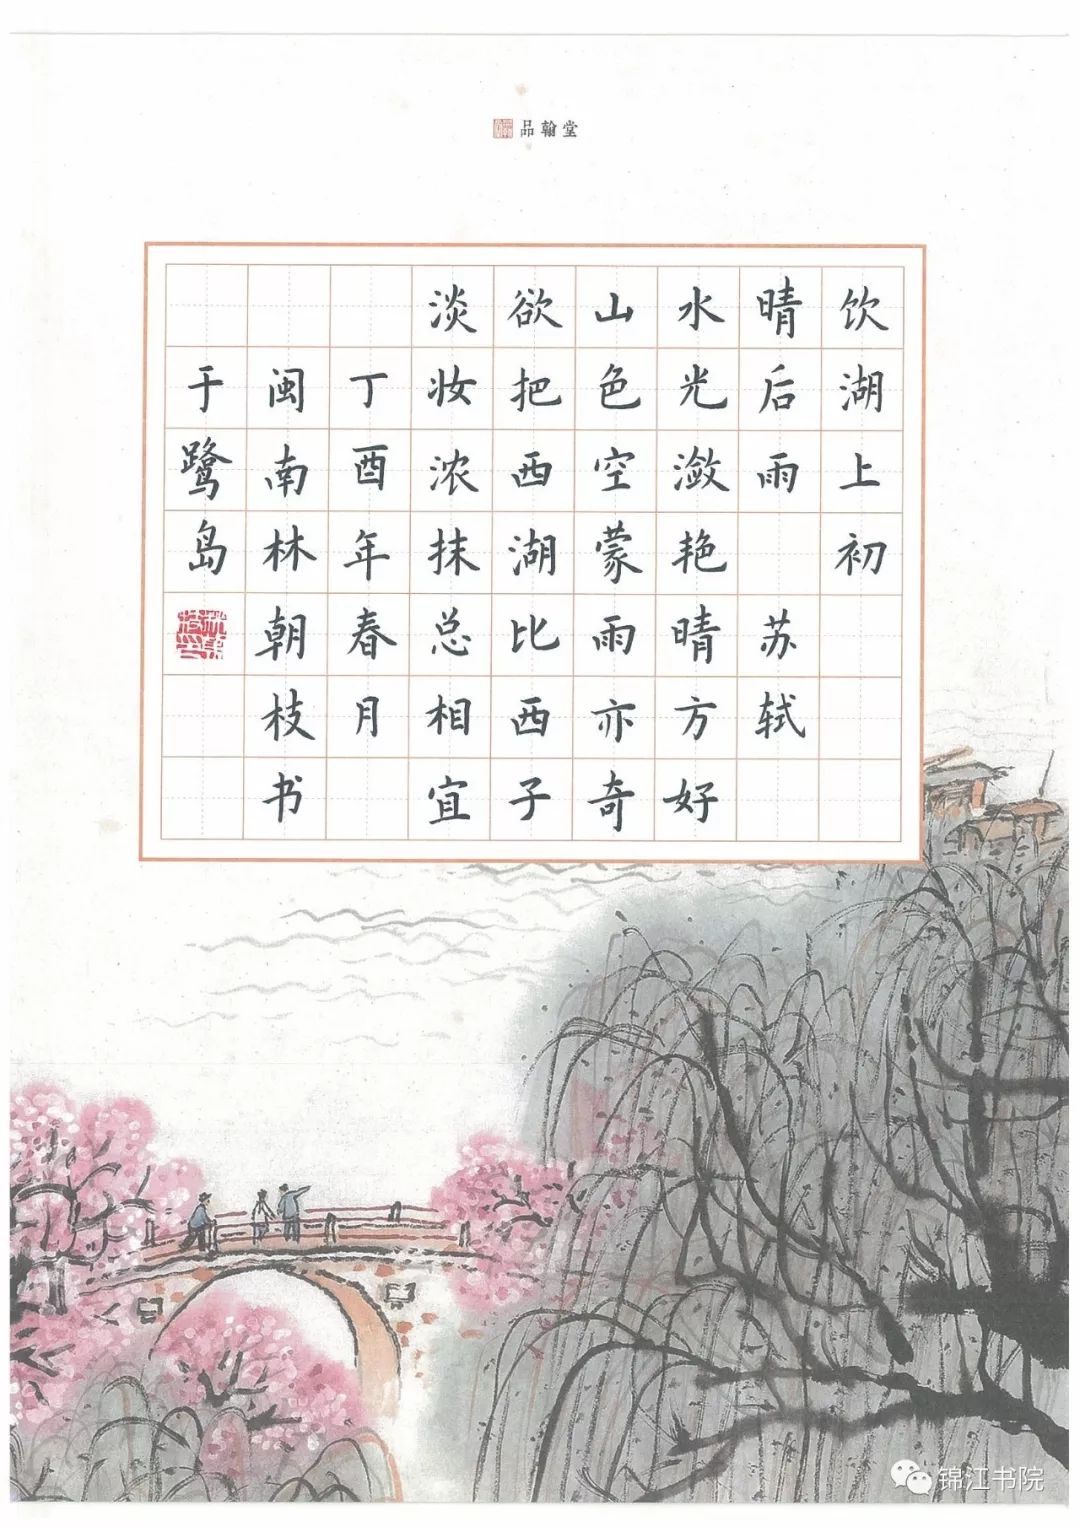 品翰堂
饮湖上初
晴后雨 苏轼
水光潋艳晴方好
山色空蒙雨亦奇
欲把西湖比西子
淡妆浓抹总相宜
丁酉年春月
闽南林朝枝书
于鹭岛
锦江书院